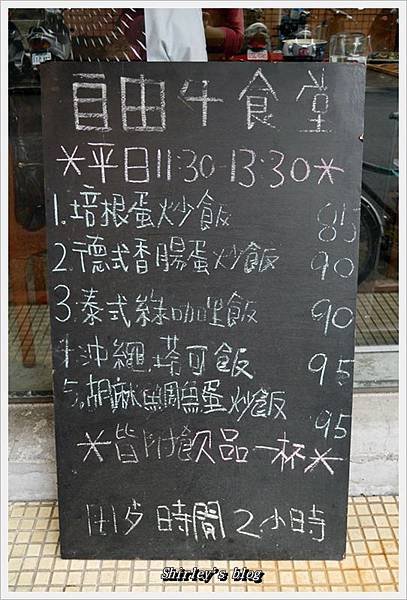 自由午食堂
*平日11:30-13:30*
1.培根蛋炒飯 85
2.德式香腸蛋炒飯 90
3.泰式綠咖哩飯 90
4.沖繩塔可飯 95
5.胡麻鯛魚蛋炒飯 95
*皆附飲品一杯*
時間2小時
Shirley's blog